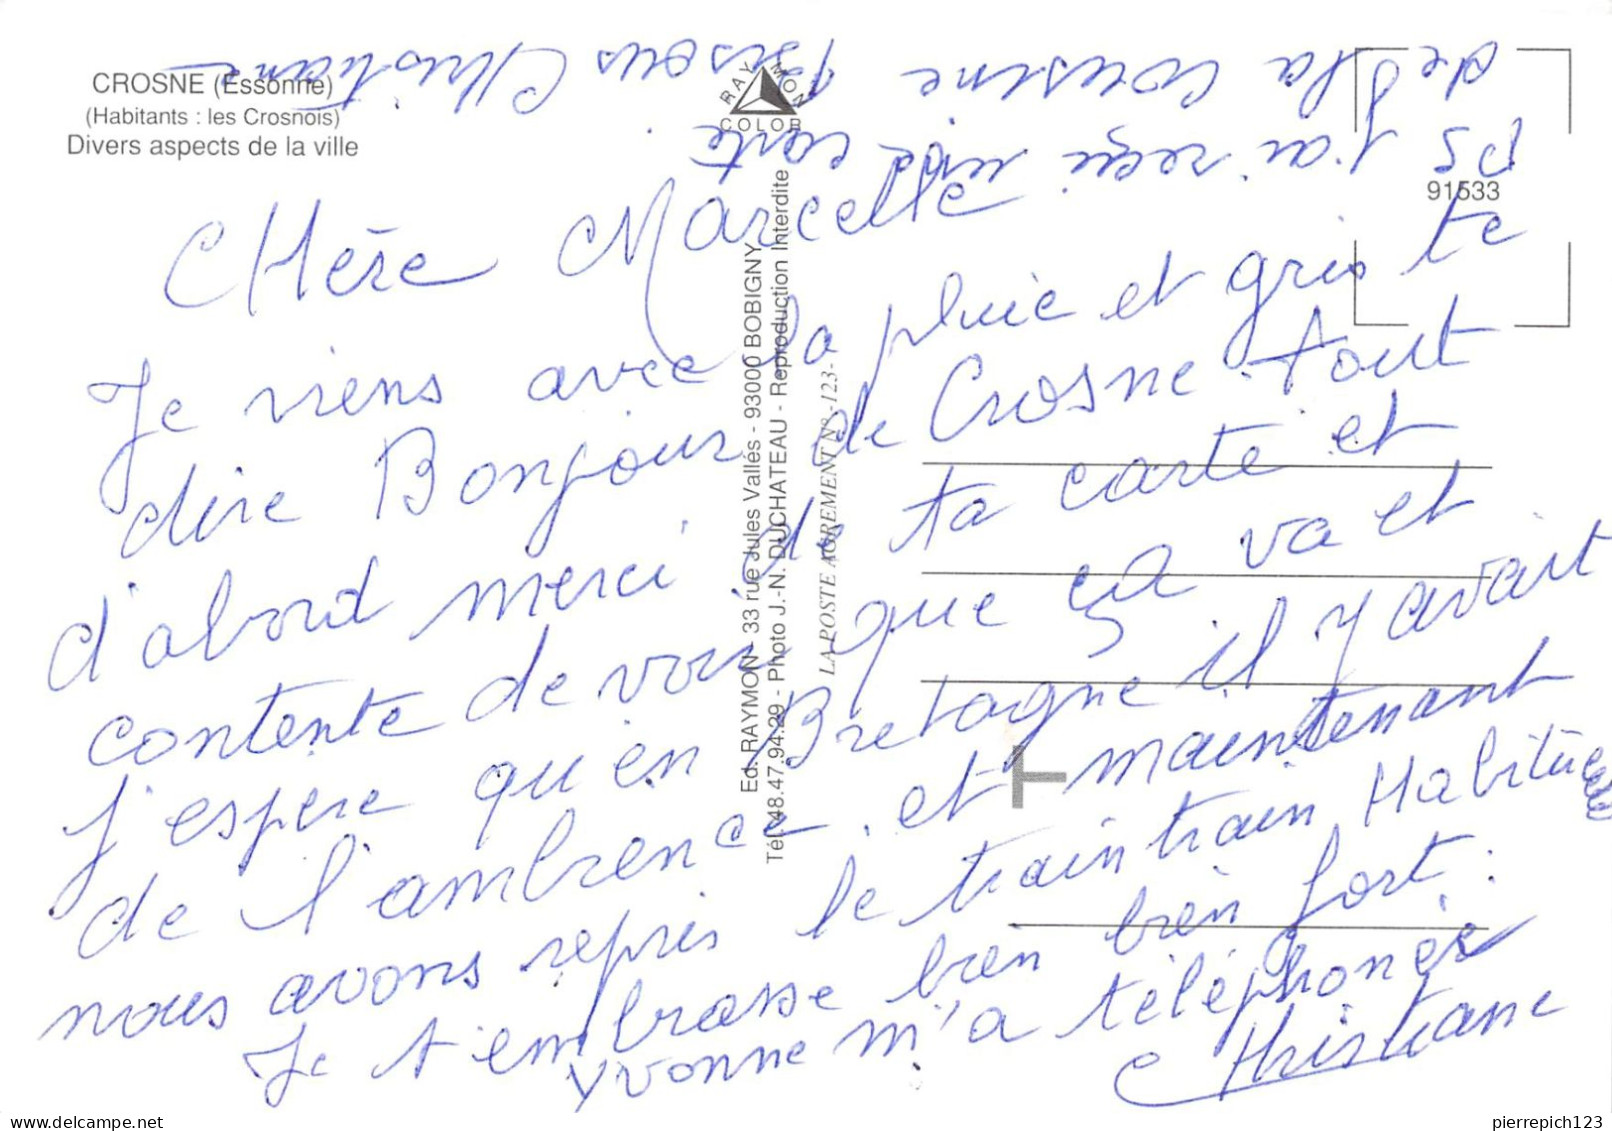 CROSNE (Essonne)
(Habitants : les Crosnois)
Divers aspects de la ville
RAYMON
COLOR
91533
Ed. RAYMON - 33 rue Jules Vallés - 93000 BOBIGNY
Tél. 48.47.94.29 - Photo J.-N. DUCHATEAU - Reproduction Interdite
LA POSTE AGREMENT N° -123-
T
CHère Marcelle
Je viens avec la pluie et gris te
dire Bonjour de Crosne tout
d'abord merci de ta carte et
contente de voir que ça va et
J'espère qu'en Bretagne il y avait
de l'ambience et maintenant
nous avons repris le traintrain Habituel
Je t'embrasse bien bien fort.
Yvonne m'a téléphonée
CHristiane
PS J'ai reçu une carte
de la cousine bisous Christiane
pierrepich123